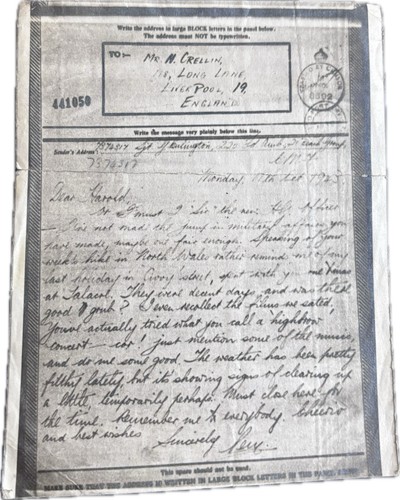 Write the address in large BLOCK letters in the panel below.
The address must NOT be typewritten.
TO:-
MR. H. CRELLIN,
LONG LANE,
LIVERPOOL, 19,
ENGLAND
441050
Write the message very plainly below this line.
Sender's Address: 7374517 Sgt
7374517 C.M.F.
Monday, Oct 1943
Dear Harold,
Or must I "Sir" the new
not made the jump in military affairs you
have made, maybe but fair enough. Speaking of your
week's hike in North Wales rather remind me of my
last holiday in spent with you
at Talacre. They were decent days, and was the
good I even recollect the films we sated,
You've actually tried what you call a highbrow
concert – cor! Just mention some of the music,
and do me some good. The weather has been pretty
filthy lately, but it's showing signs of clearing up
a little, temporarily perhaps. Must close here for
the time. Remember me to everybody. Cheerio
and best wishes
Sincerely
This space should not be used.
MAKE SURE THAT THE ADDRESS IS WRITTEN IN LARGE BLOCK LETTERS IN THE PANEL